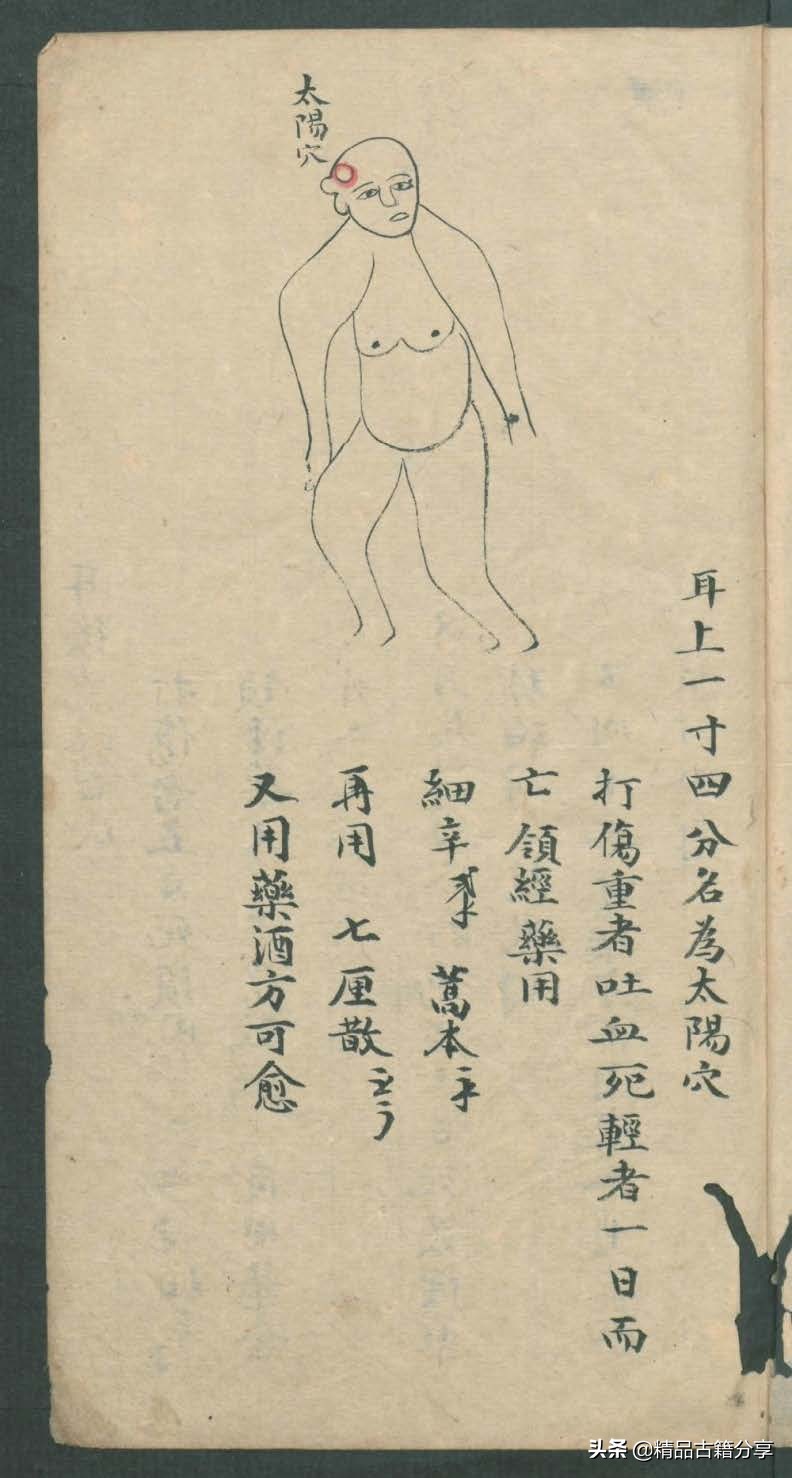 太陽穴
耳上一寸四分名為太陽穴
打傷重者吐血死輕者一日而
亡 領經藥用
細辛 蒿本
再用 七厘散
又用藥酒方可愈
头条 @精品古籍分享